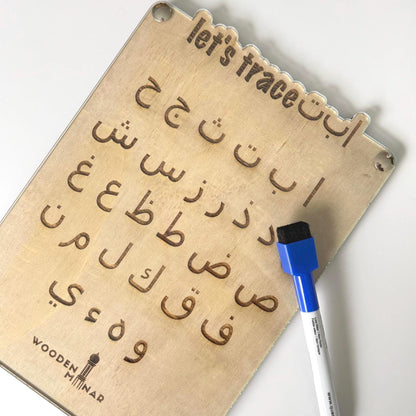 let's trace ابت
ا ب ت ث ج ح
د ذ ر ز س ش
ص ض ط ظ ع غ
ف ق ك ل م ن
و ه ء ي
WOODEN
MINAR